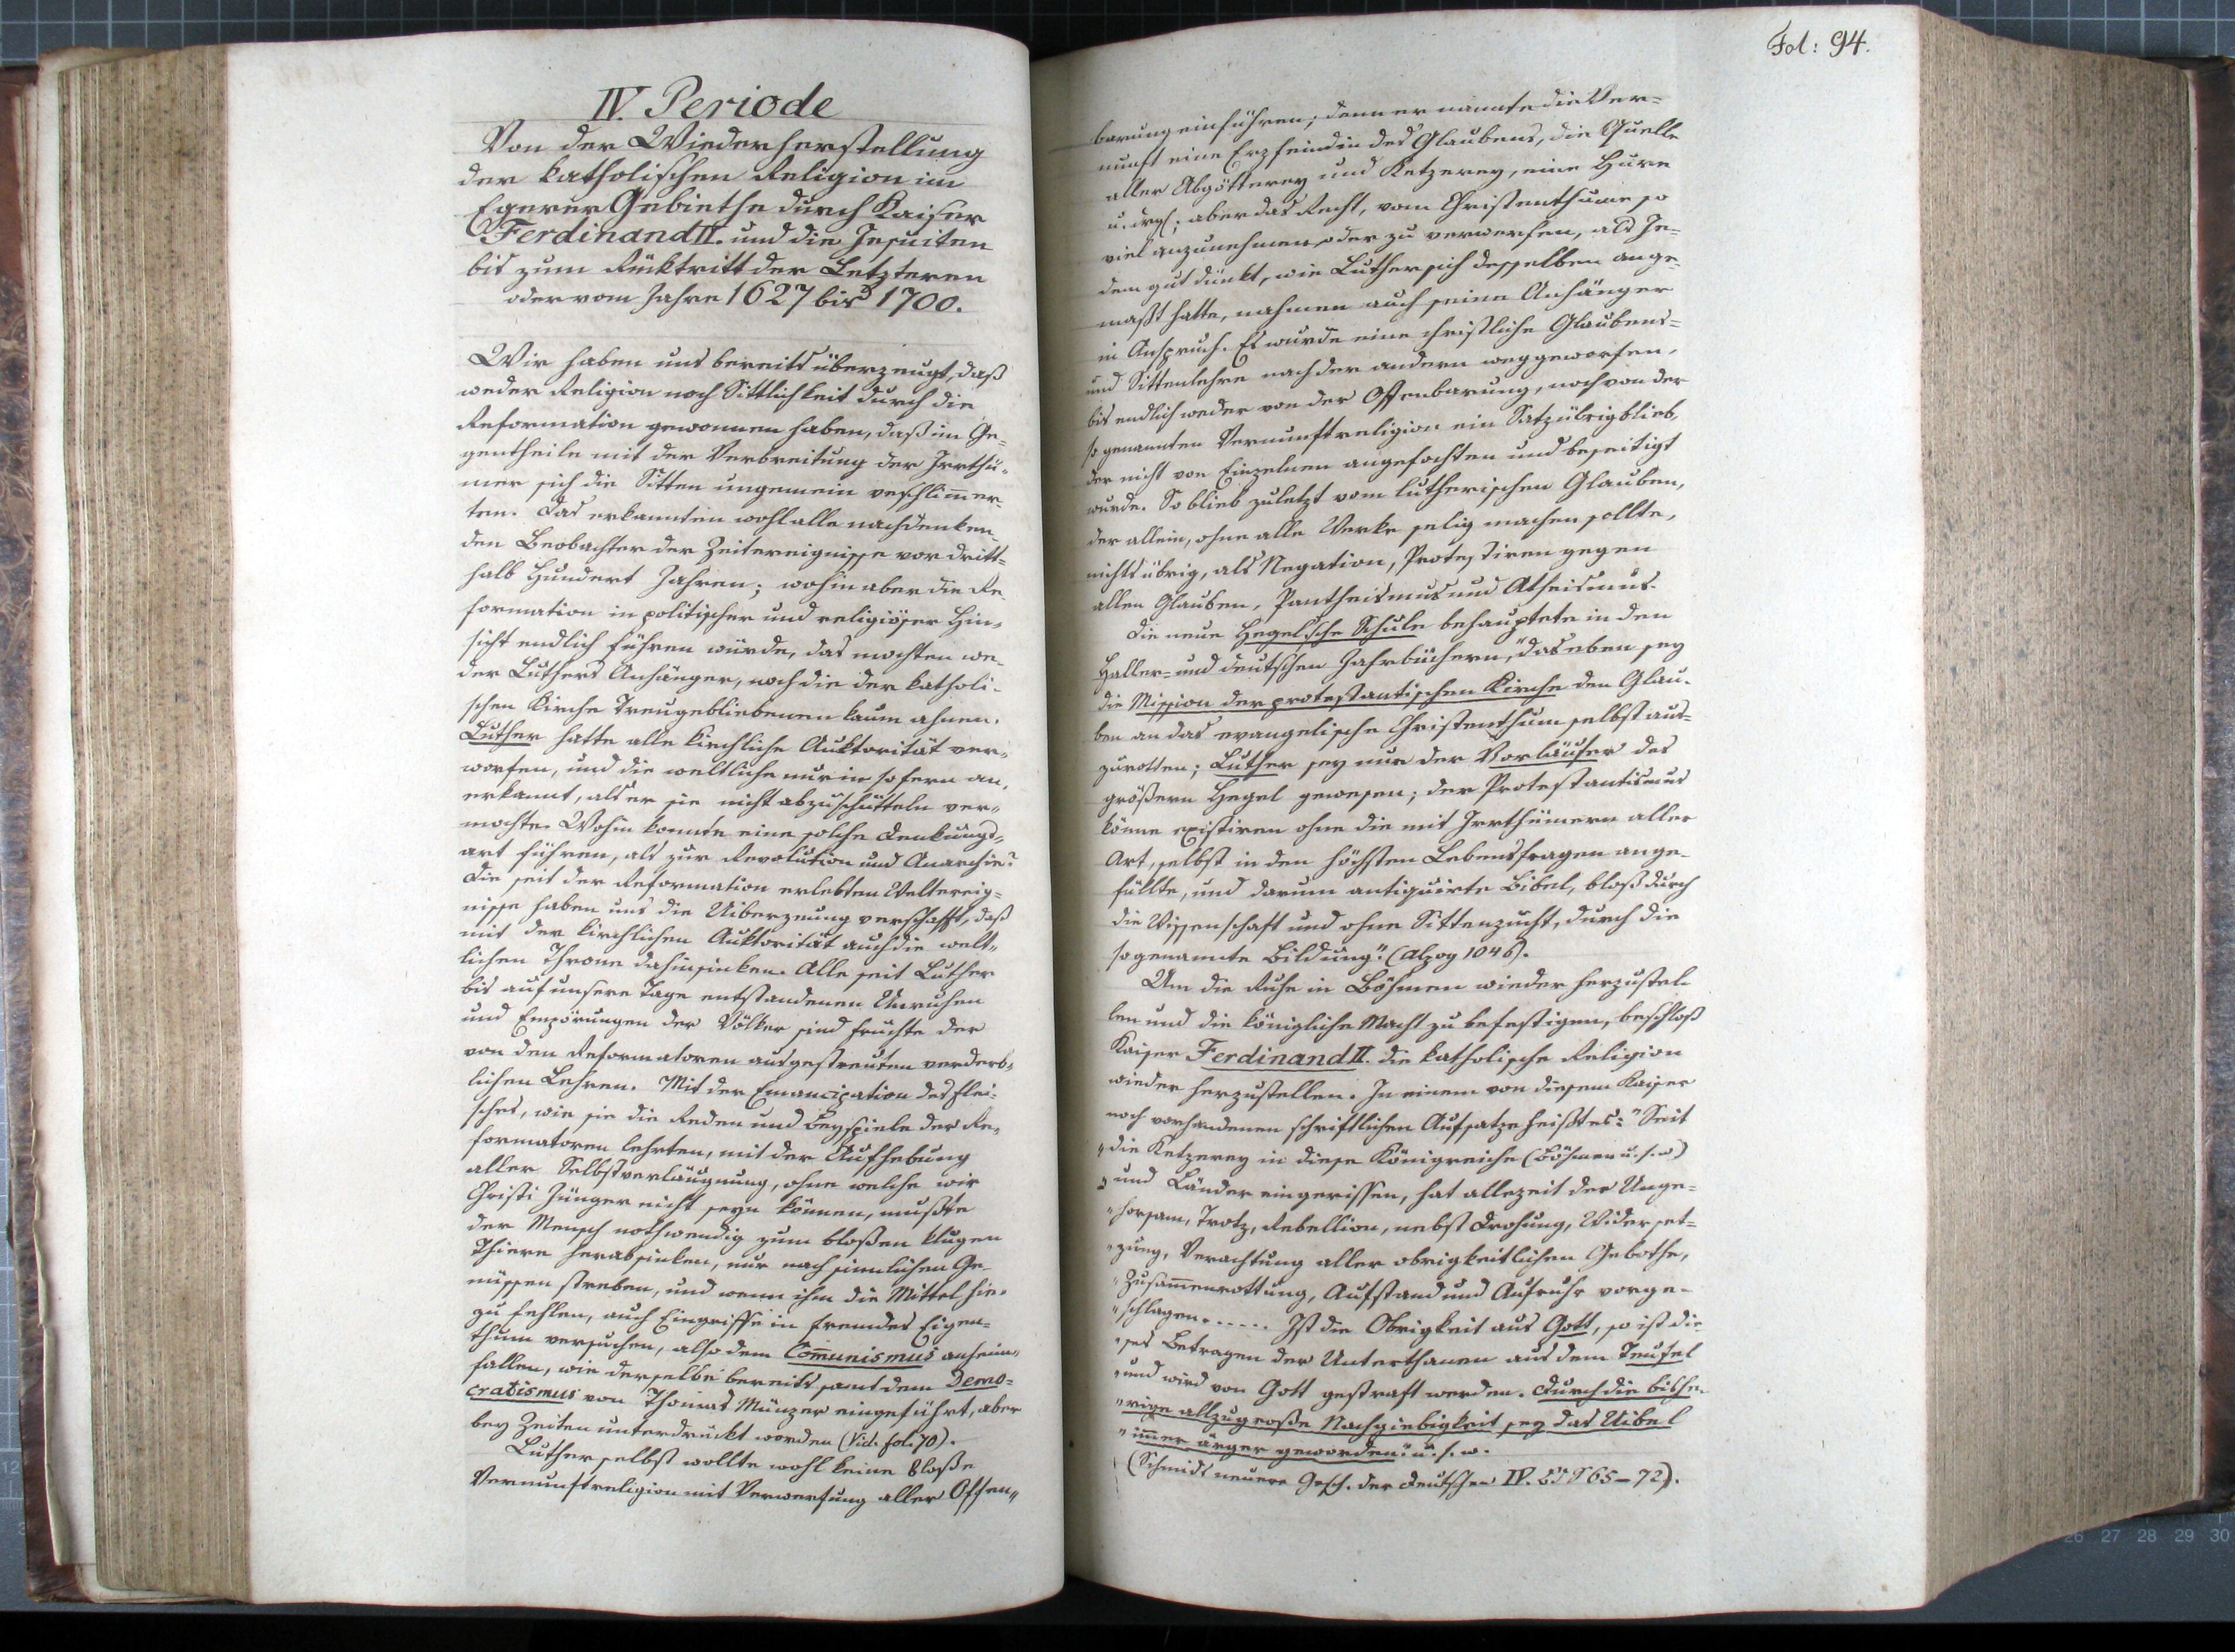 IV. Periode
Von der Wiederherstellung
der katholischen Religion im
Egerer Gebiethe durch Kaiser
Ferdinand II. und die Jesuiten
bis zum Rücktritt der Letzteren
oder vom Jahre 1627 bis 1700.
Wir haben uns bereits überzeugt, daß
weder Religion noch Sittlichkeit durch die
Reformation gewonnen haben, daß im Ge=
gentheile mit der Verbreitung der Irrthü=
mer sich die Sitten ungemein veschlim̄er=
ten. Das erkannten wohl alle nachdenken=
den Beobachter der Zeitereignisse vor dritt=
halb Hundert Jahren; wohin aber die Re=
formation in politischer und religiöser Hin=
sicht endlich führen würde, das mochten we=
der Luthers Anhänger, noch die der katholi=
schen Kirche Treugebliebenen kaum ahnen.
Luther hatte alle kirchliche Auktorität ver=
worfen, und die weltliche nur in so fern an=
erkannt, als er sie nicht abzuschütteln ver=
mochte. Wohin konnte eine solche Denkungs=
art führen, als zur Revolution und Anarchie?
Die seit der Reformation erlebten Weltereig=
nisse haben uns die Uiberzeuung verschafft, daß
mit der kirchlichen Auktorität auch die welt=
lichen Throne dahinsinken. Alle seit Luther
bis auf unsere Tage entstandenen Unruhen
und Empörungen der Völker sind Früchte der
von den Reformatoren ausgestreuten verderb=
lichen Lehren. Mit der Emancipation des Flei=
sches, wie sie die Reden und Beyspiele der Re=
formatoren lehrten, mit der Aufhebung
aller Selbstverläugnung, ohne welche wir
Christi Jünger nicht seyn können, mußte
der Mensch nothwendig zum bloßen klugen
Thiere herabsinken, nur nach sinnlichen Ge=
nüssen streben, und wenn ihm die Mittel hie=
zu fehlen, auch Eingriffe in fremdes Eigen=
thum versuchen, also dem Com̄unismus anheim=
fallen, wie derselbe bereits samt dem Demo=
cratismus von Thomas Münzer eingeführt, aber
bey Zeiten unterdrückt worden (Vid. fol. 70).
Luther selbst wollte wohl keine bloße
Vernunftreligion mit Verwerfung aller Offen=
Fol: 94.
barung einführen; denn er nannte die Ver=
nunft eine Erzfeindin des Glaubens, die Quelle
aller Abgötterey und Ketzerey, eine Hure
u. drgl; aber das Recht, vom Christenthume so
viel anzunehmen oder zu verwerfen, als Je=
dem gut dünkt, wie Luther sich desselben ange=
maßt hatte, nahmen auch seine Anhänger
in Anspruch. Es wurde eine christliche Glaubens=
und Sittenlehre nach der andern weggeworfen,
bis endlich weder von der Offenbarung, noch von der
so genannten Vernunftreligion ein Satz übrig blieb,
der nicht von Einzelnen angefochten und beseitigt
wurde. So blieb zuletzt vom lutherischen Glauben,
der allein, ohne alle Werke selig machen sollte,
nichts übrig, als Negation, Protestiren gegen
allen Glauben, Pantheismus und Atheismus.
Die neue Hegel'sche Schule behauptete in den
Haller= und deutschen Jahrbüchern, "das eben sey
die Mission der protestantischen Kirche den Glau=
ben an das evangelische Christenthum selbst aus=
zurotten; Luther sey nur der Vorläufer des
größern Hegel gewesen; der Protestantismus
könne existiren ohne die mit Irrthümern aller
Art, selbst in den höchsten Lebensfragen ange=
füllte, und darum antiquirte Bibel, bloß durch
die Wissenschaft und ohne Sittenzucht, durch die
sogenannte Bildung." (Alzog 1046).
Um die Ruhe in Böhmen wieder herzustel=
len und die königliche Macht zu befestigen, beschloß
Kaiser Ferdinand II. die katholische Religion
wieder herzustellen. In einem von diesem Kaiser
noch vorhandenen schriftlichen Aufsatze heißt es: "Seit
"die Ketzerey in diese Königreiche (Böhmen u. s. w)
"und Länder eingerissen, hat allezeit der Unge=
"horsam, Trotz, Rebellion, nebst Drohung, Widerset=
"zung, Verachtung aller obrigkeitlichen Gebothe,
"Zusam̄enrottung, Aufstand und Aufruhr vorge=
"schlagen...... Ist die Obrigkeit aus Gott, so ist die=
"ses Betragen der Unterthanen aus dem Teufel
"und wird von Gott gestraft werden. Durch die bishe=
"rige allzugroße Nachgiebigkeit sey das Uibel
"im̄er ärger geworden." u. s. w.
(Schmidt neuere Gesch. der Deutschen IV. Bd S 65–72).